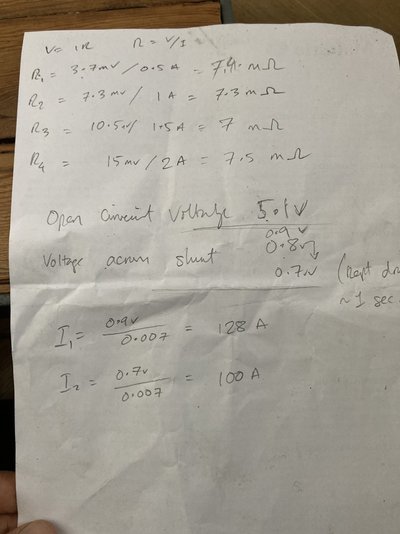 V = IR R = V/I
R₁ = 3.7mv / 0.5A = 7.4 mΩ
R₂ = 7.3mv / 1A = 7.3 mΩ
R₃ = 10.5v / 1.5A = 7 mΩ
R₄ = 15mv / 2A = 7.5 mΩ
Open Circuit Voltage 5.1V
0.9v
Voltage across shunt 0.8v
0.7v (kept
~1 sec.
I₁ = 0.9v / 0.007 = 128 A
I₂ = 0.7v / 0.007 = 100 A